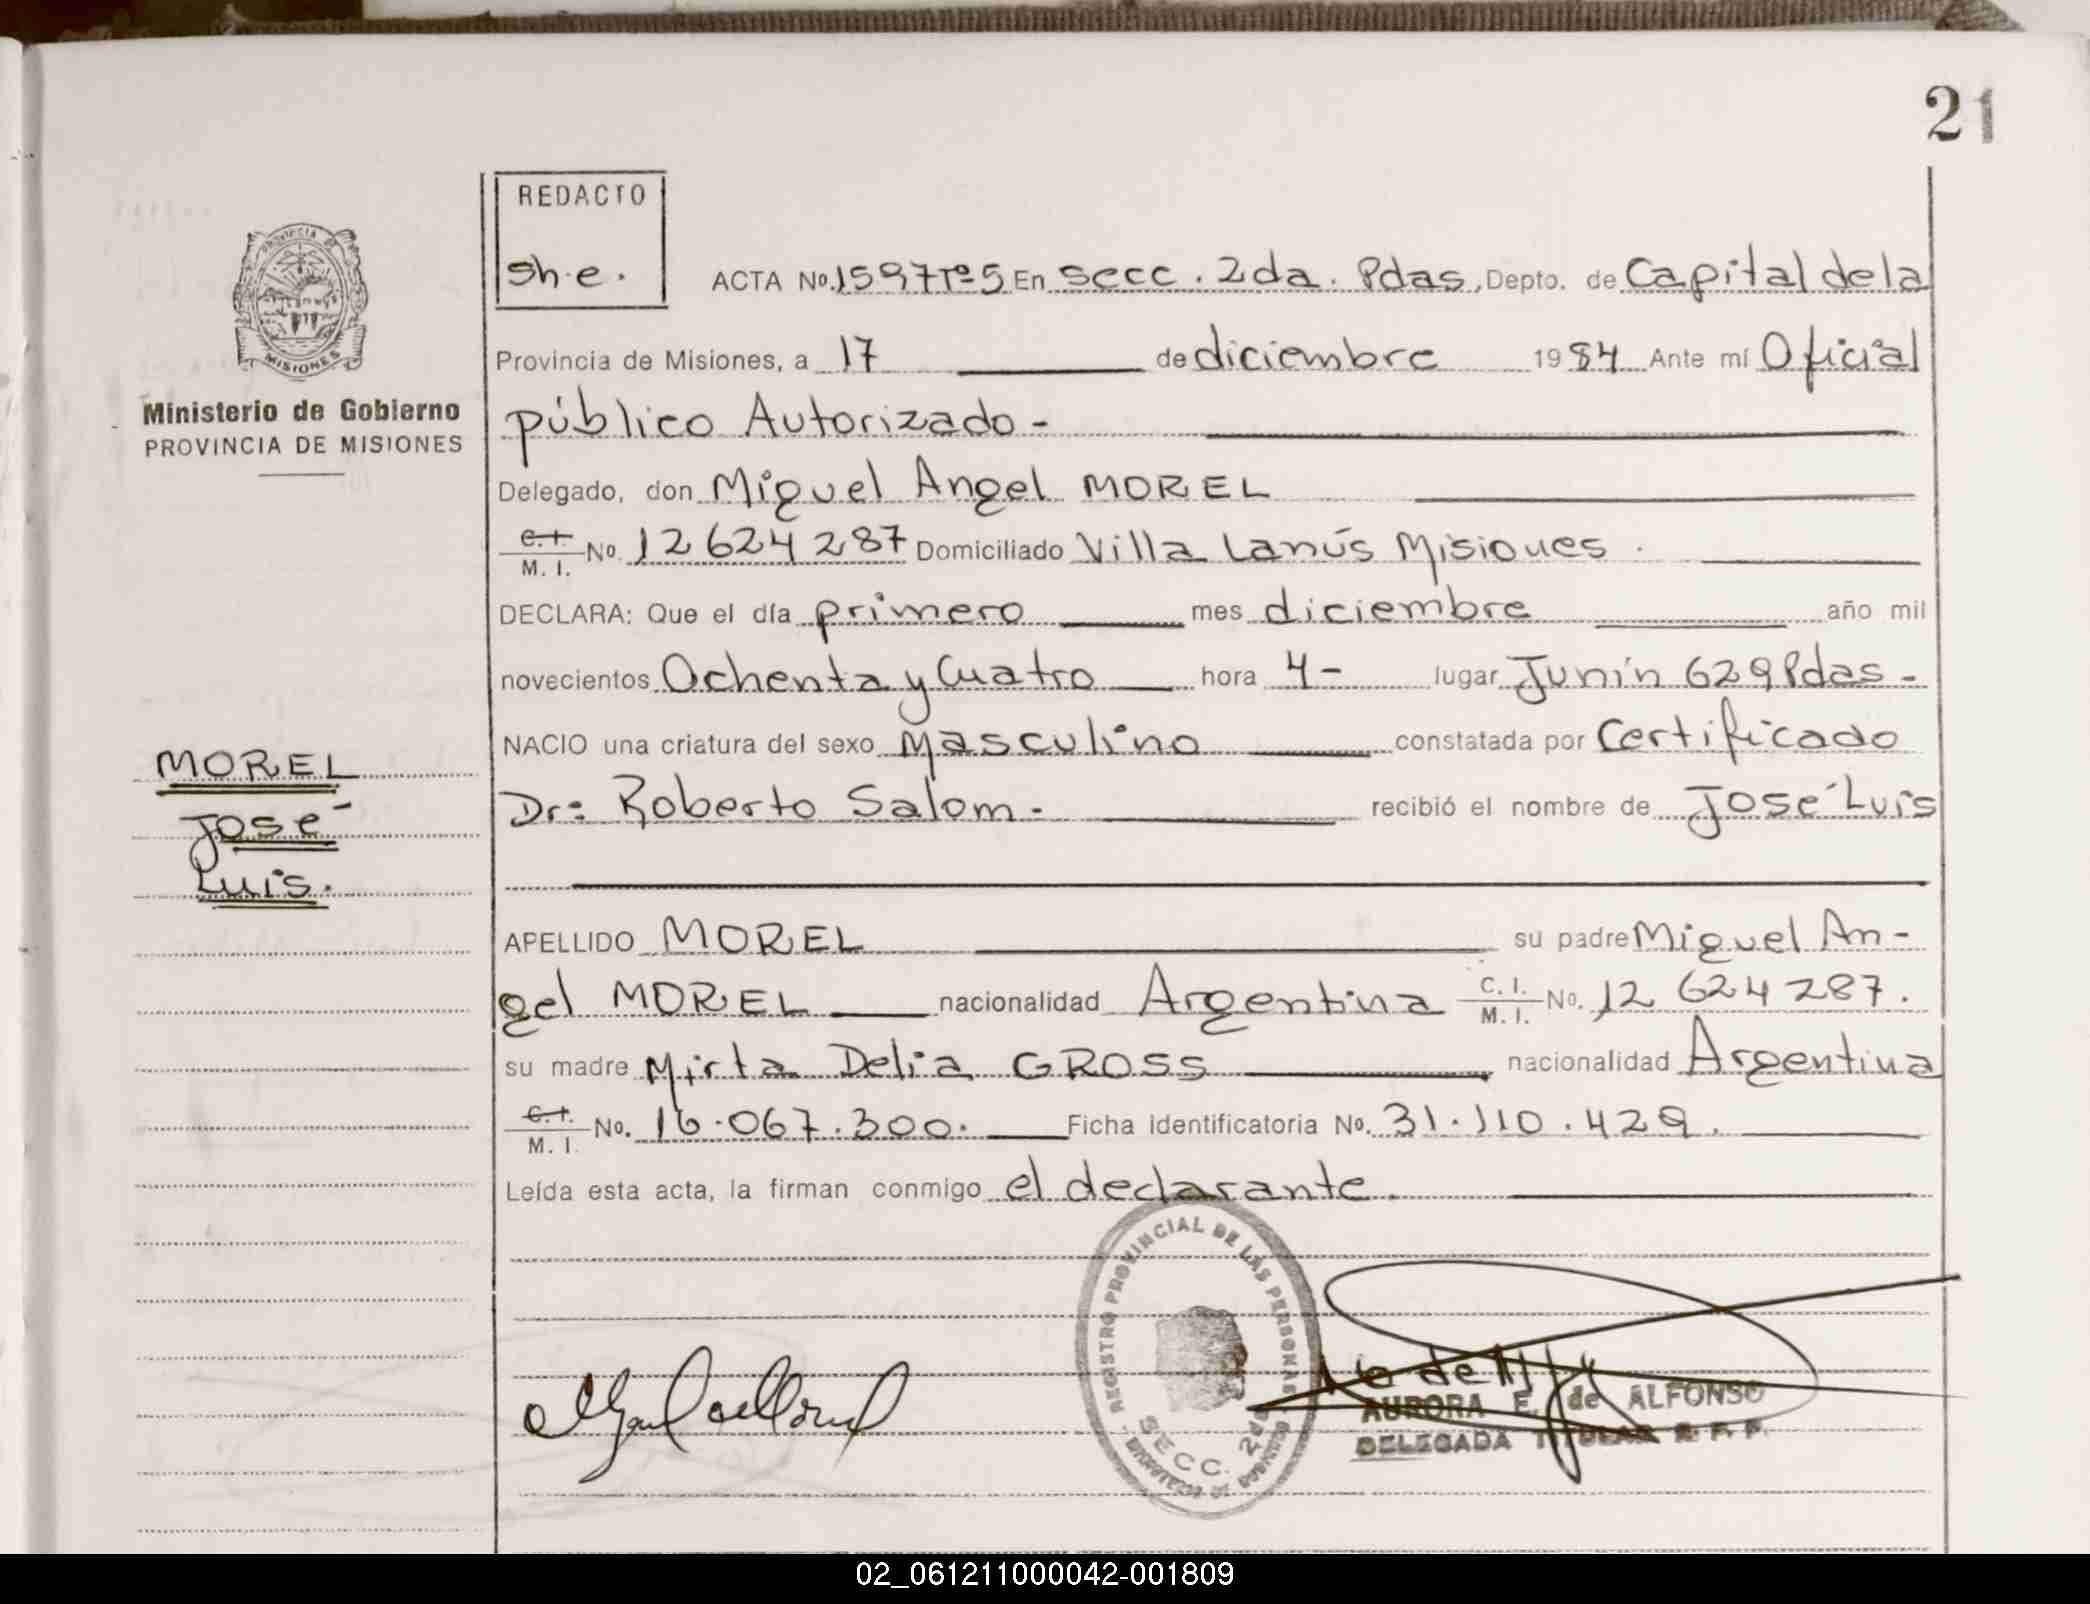 21
REDACTO
sh.e.
ACTA No. 1597 Tº 5 En secc. 2da. Pdas, Depto. de Capital de la
Provincia de Misiones, a 17 de diciembre 1984 Ante mí Oficial
público Autorizado -
Delegado, don Miguel Angel MOREL
C. I. / M. I. No. 12 624 287 Domiciliado Villa Lanús Misiones.
DECLARA: Que el día primero mes diciembre año mil
novecientos Ochenta y Cuatro hora 4 - lugar Junín 629 Pdas -
NACIO una criatura del sexo Masculino constatada por Certificado
Dr: Roberto Salom - recibió el nombre de José Luis
APELLIDO MOREL su padre Miguel An-
gel MOREL nacionalidad Argentina C. I. / M. I. No. 12 624 287.
su madre Mirta Delia GROSS nacionalidad Argentina
C. I. / M. I. No. 16.067.300. Ficha Identificatoria No. 31.110.429.
Leída esta acta, la firman conmigo el declarante.
PROVINCIA DE
MISIONES
Ministerio de Gobierno
PROVINCIA DE MISIONES
MOREL
José
Luis.
REGISTRO PROVINCIAL DE LAS PERSONAS
SECC. 2da
AURORA E. de ALFONSO
DELEGADA TITULAR R. P. P.
02_061211000042-001809